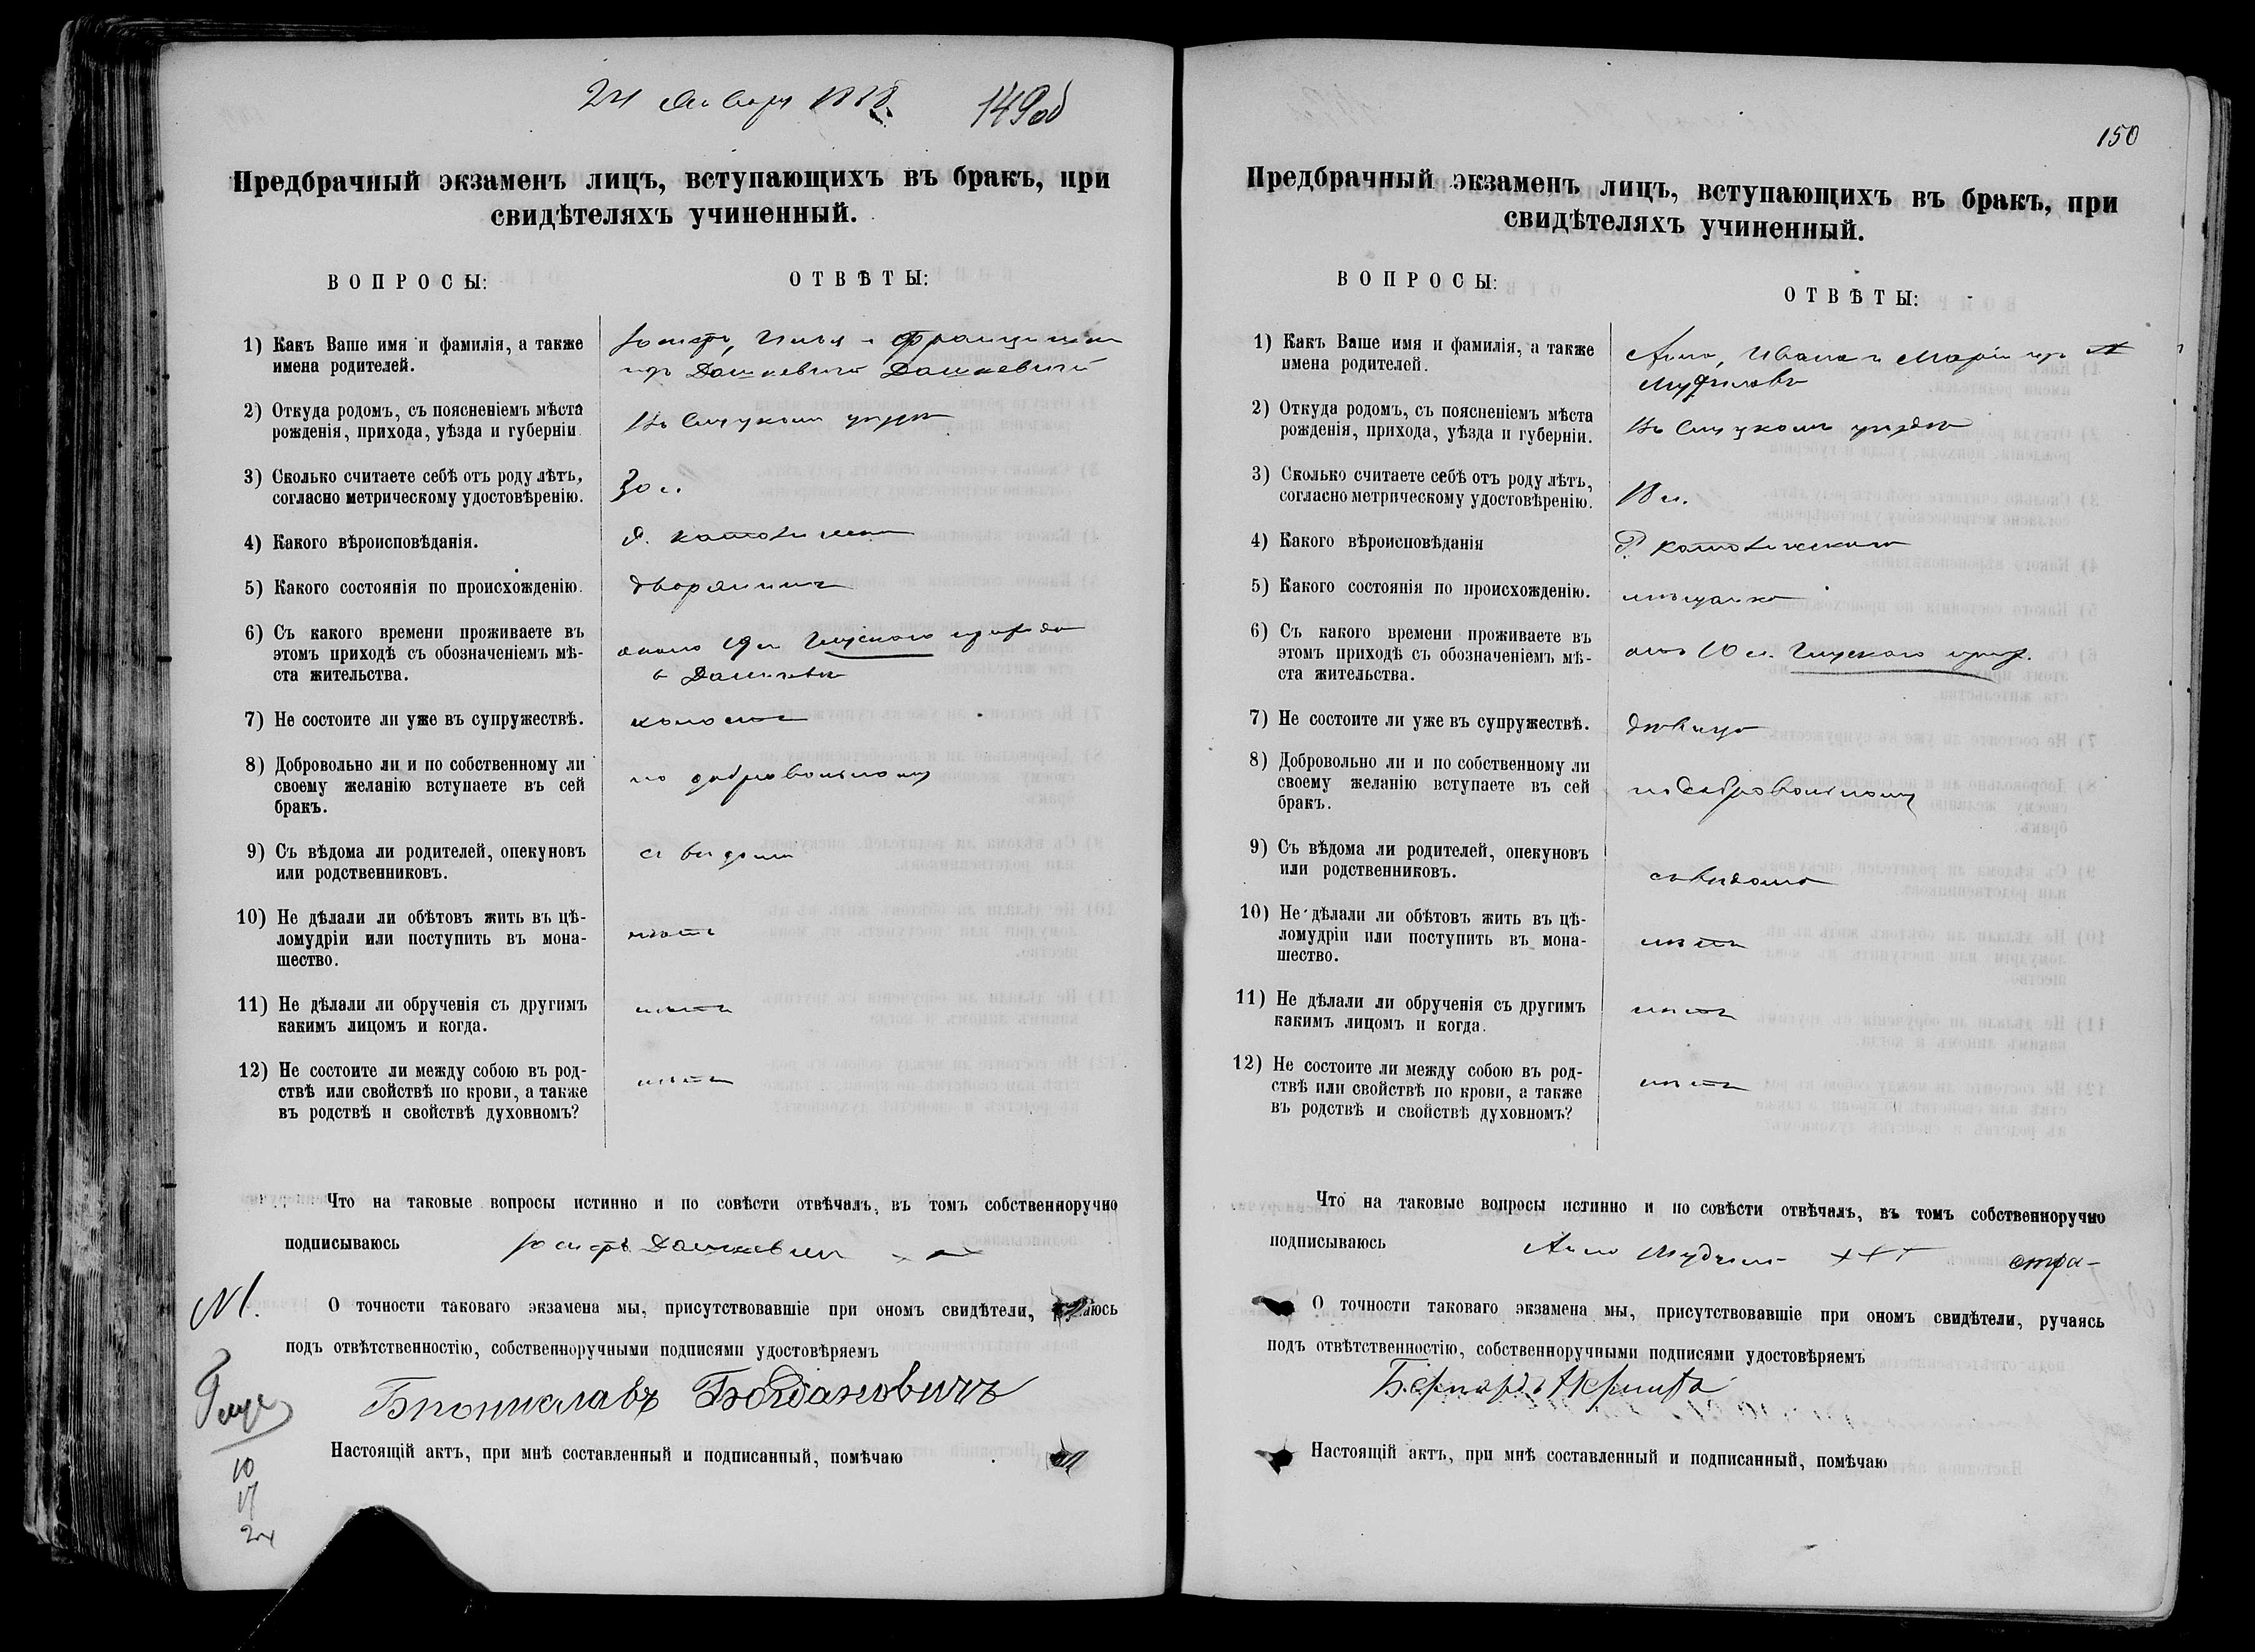 24 Января 1888 149об
Предбрачный экзаменъ лицъ, вступающихъ въ бракъ, при
свидѣтеляхъ учиненный.
ВОПРОСЫ: ОТВѢТЫ:
1) Какъ Ваше имя и фамилія, а также
имена родителей.
Іосифъ, Ильи и Францишки
изъ Дашкевичей Дашкевичъ
2) Откуда родомъ, съ поясненіемъ мѣста
рожденія, прихода, уѣзда и губерніи
Въ Слуцкомъ уездѣ
3) Сколько считаете себѣ отъ роду лѣтъ,
согласно метрическому удостовѣренію.
30 л.
4) Какого вѣроисповѣданія.
5) Какого состоянія по происхожденію.
дворянинъ
6) Съ какого времени проживаете въ
этомъ приходѣ съ обозначеніемъ мѣ-
ста жительства.
около 19 л
7) Не состоите ли уже въ супружествѣ.
холостъ
8) Добровольно ли и по собственному ли
своему желанію вступаете въ сей
бракъ.
по добровольному
9) Съ вѣдома ли родителей, опекуновъ
или родственниковъ.
10) Не дѣлали ли обѣтовъ жить въ цѣ-
ломудріи или поступить въ мона-
шество.
нѣтъ
11) Не дѣлали ли обрученія съ другимъ
какимъ лицомъ и когда.
нѣтъ
12) Не состоите ли между собою въ род-
ствѣ или свойствѣ по крови, а также
въ родствѣ и свойствѣ духовномъ?
нѣтъ
Что на таковые вопросы истинно и по совѣсти отвѣчалъ, въ томъ собственноручно
подписываюсь Іосифъ Дашкевичъ
N 1.
О точности таковаго экзамена мы, присутствовавшіе при ономъ свидѣтели, ручаюсь
подъ отвѣтственностію, собственноручными подписями удостовѣряемъ
Брониславъ Богдановичъ
Настоящій актъ, при мнѣ составленный и подписанный, помѣчаю
10
17
24
150
Предбрачный экзаменъ лицъ, вступающихъ въ бракъ, при
свидѣтеляхъ учиненный.
ВОПРОСЫ: ОТВѢТЫ:
1) Какъ Ваше имя и фамилія, а также
имена родителей.
Анна, Ивана и Маріи изъ
2) Откуда родомъ, съ поясненіемъ мѣста
рожденія, прихода, уѣзда и губерніи.
Въ Слуцкомъ уездѣ
3) Сколько считаете себѣ отъ роду лѣтъ,
согласно метрическому удостовѣренію.
18 л.
4) Какого вѣроисповѣданія
Р. католическаго
5) Какого состоянія по происхожденію.
мѣщанка
6) Съ какого времени проживаете въ
этомъ приходѣ съ обозначеніемъ мѣ-
ста жительства.
7) Не состоите ли уже въ супружествѣ.
дѣвица
8) Добровольно ли и по собственному ли
своему желанію вступаете въ сей
бракъ.
по добровольному
9) Съ вѣдома ли родителей, опекуновъ
или родственниковъ.
10) Не дѣлали ли обѣтовъ жить въ цѣ-
ломудріи или поступить въ мона-
шество.
нѣтъ
11) Не дѣлали ли обрученія съ другимъ
какимъ лицомъ и когда.
нѣтъ
12) Не состоите ли между собою въ род-
ствѣ или свойствѣ по крови, а также
въ родствѣ и свойствѣ духовномъ?
нѣтъ
Что на таковые вопросы истинно и по совѣсти отвѣчалъ, въ томъ собственноручно
подписываюсь Анна +++
О точности таковаго экзамена мы, присутствовавшіе при ономъ свидѣтели, ручаясь
подъ отвѣтственностію, собственноручными подписями удостовѣряемъ
Настоящій актъ, при мнѣ составленный и подписанный, помѣчаю